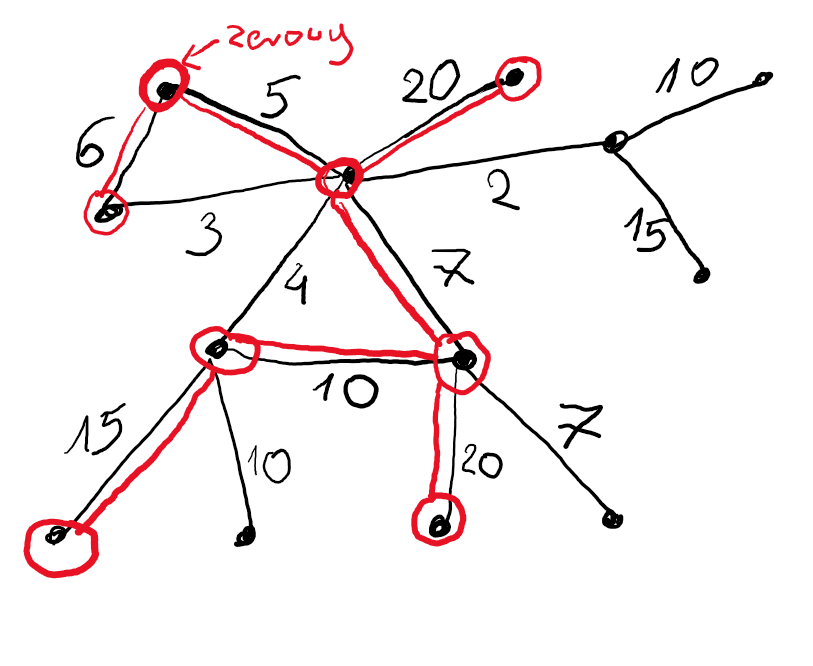 zerowy
5
20
10
6
3
2
15
4
7
10
15
10
20
7